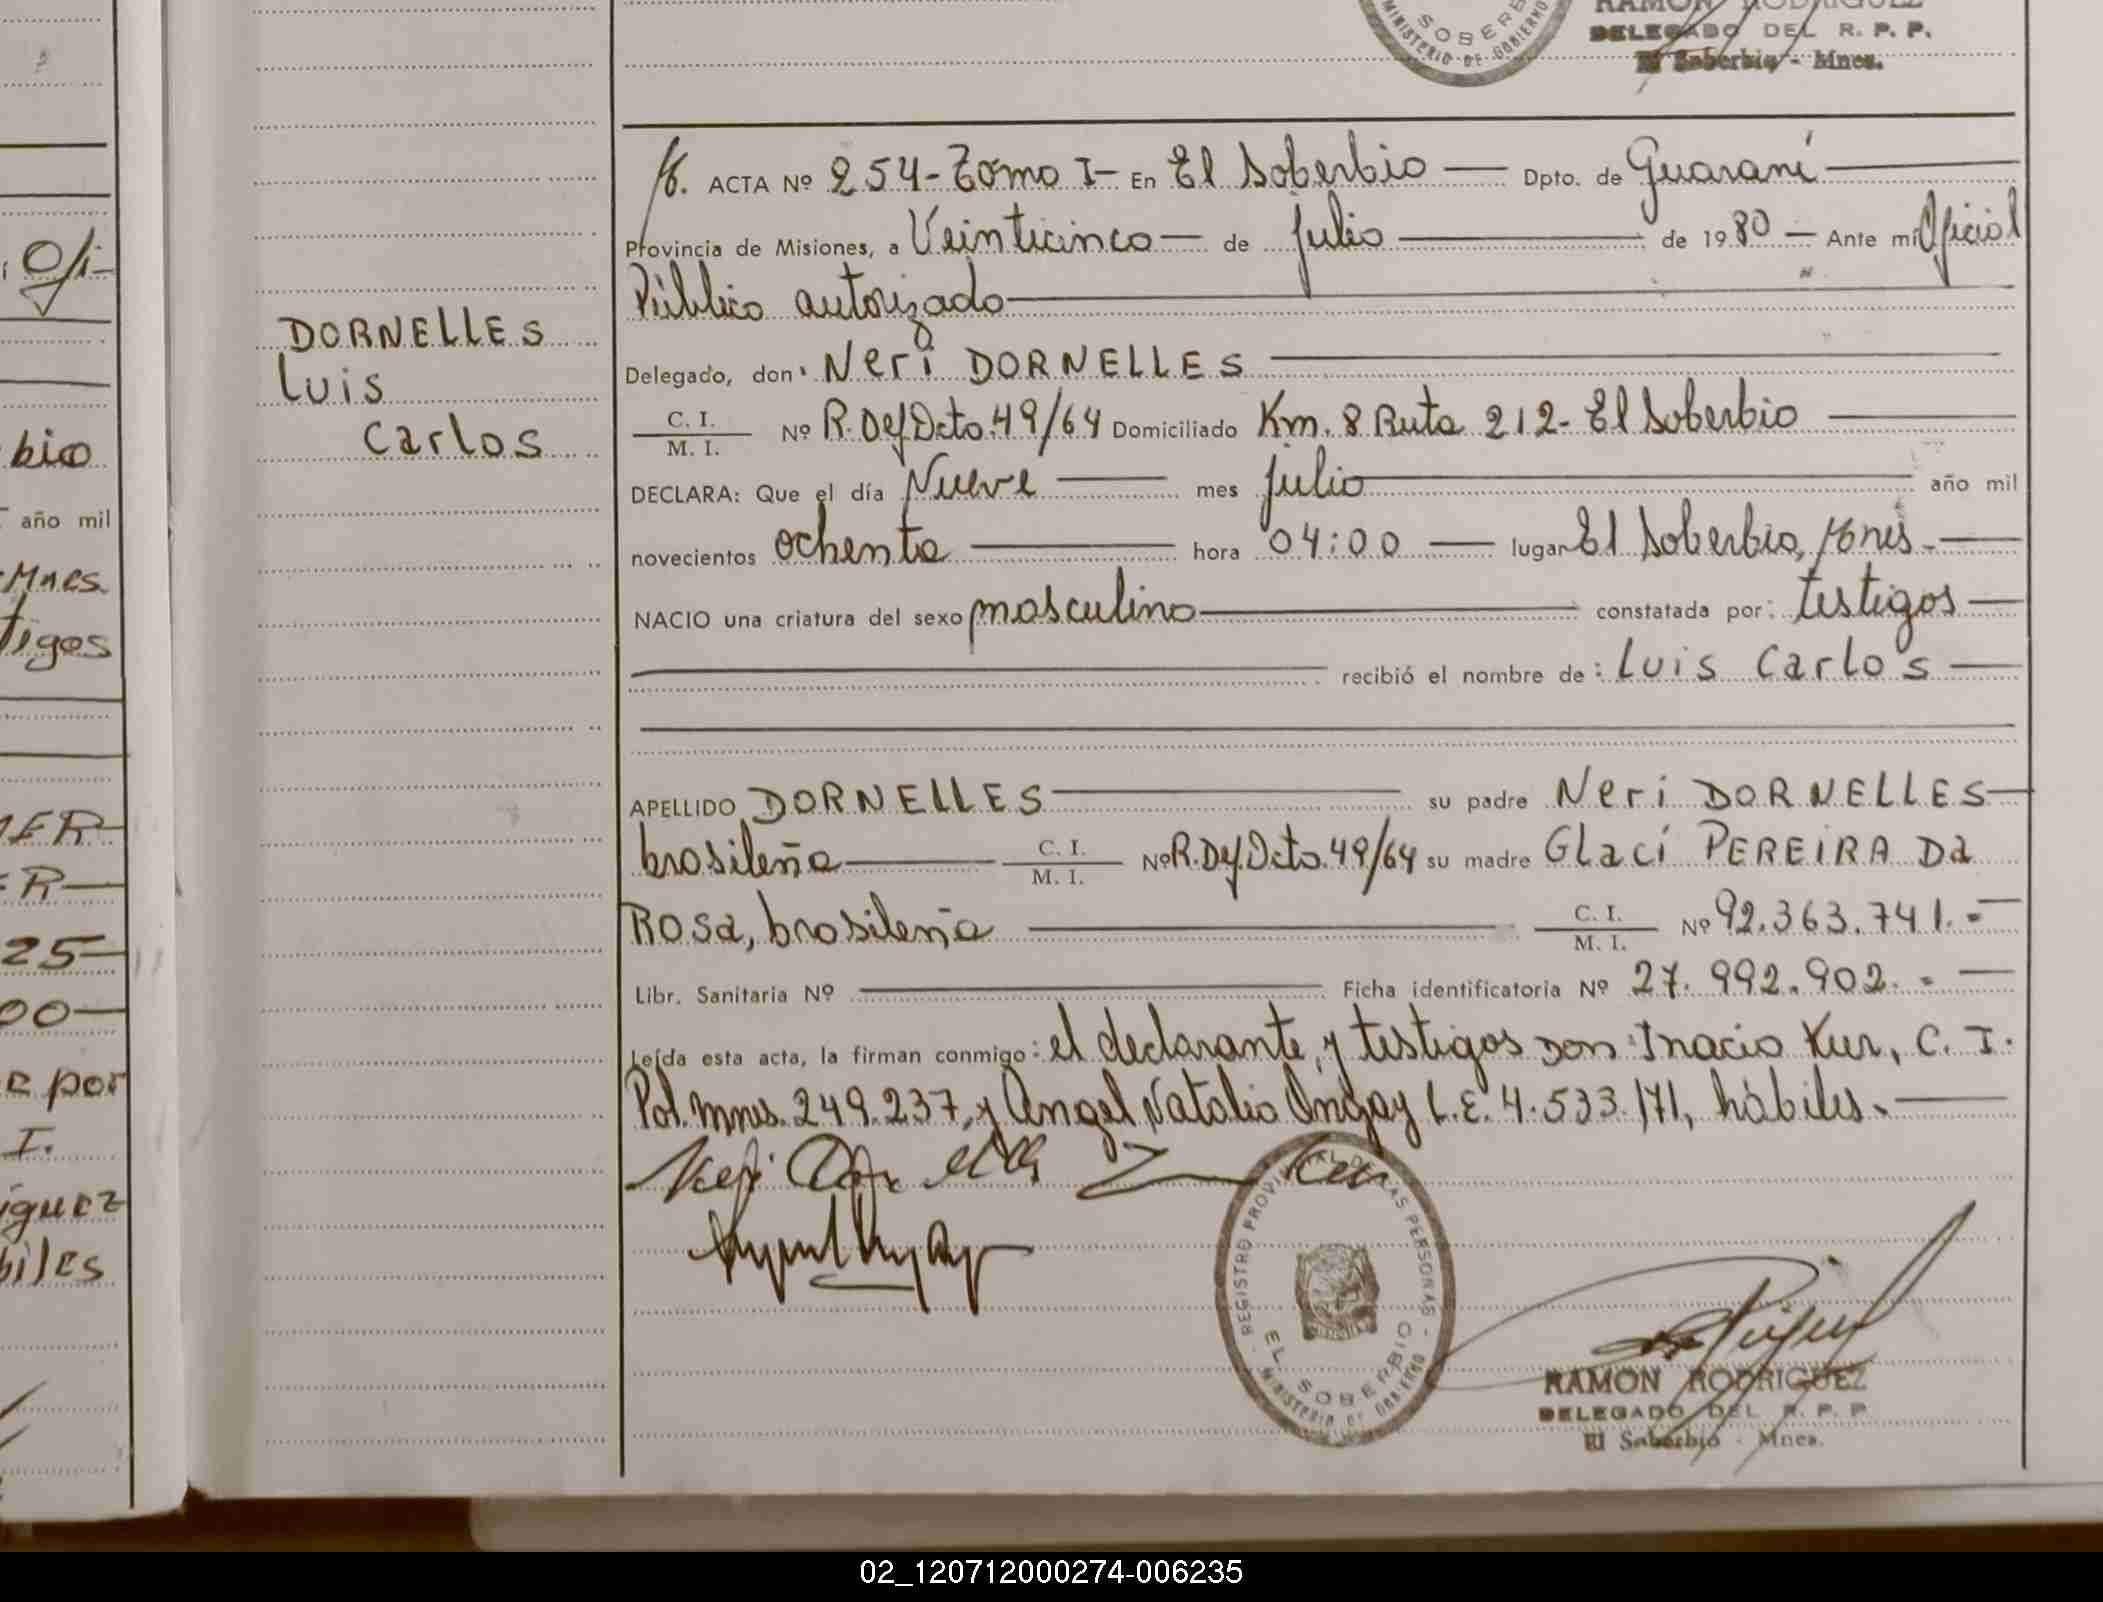 RAMON RODRIGUEZ
SOBERB
MINISTERIO DE GOBIERNO
DELEGADO DEL R. P. P.
El Soberbio - Mnes.
ACTA Nº 254-Tomo I- En El Soberbio Dpto. de Guaraní
Provincia de Misiones, a Veinticinco de julio de 1980 Ante mi Oficial
Público autorizado
DORNELLES
Luis
Carlos
Delegado, don Neri DORNELLES
C. I.
M. I.
Nº R. Def Dcto. 49/64 Domiciliado Km. 8 Ruta 212- El Soberbio
DECLARA: Que el día Nueve mes julio año mil
novecientos ochenta hora 04:00 lugar El Soberbio, Mnes.
NACIO una criatura del sexo masculino constatada por: testigos
recibió el nombre de: Luis Carlos
APELLIDO DORNELLES su padre Neri DORNELLES
brasileña C. I. M. I. Nº R. Def. Dcto. 49/64 su madre Glaci PEREIRA Da
Rosa, brasileña C. I. M. I. Nº 92.363.741.
Libr. Sanitaria Nº Ficha identificatoria Nº 27.992.902.
Leída esta acta, la firman conmigo: el declarante, y testigos Don Inacio Kur, C. I.
Pol. Mnes. 249.237, y Angel Natalio Ongay L.E. 4.533.171, hábiles.
REGISTRO PROVINCIAL DE LAS PERSONAS
EL SOBERBIO
MINISTERIO DE GOBIERNO
RAMON RODRIGUEZ
DELEGADO DEL R. P. P.
El Soberbio - Mnes.
bio
año mil
Mnes.
tigos
25
00
por
I.
iguez
biles
02_120712000274-006235